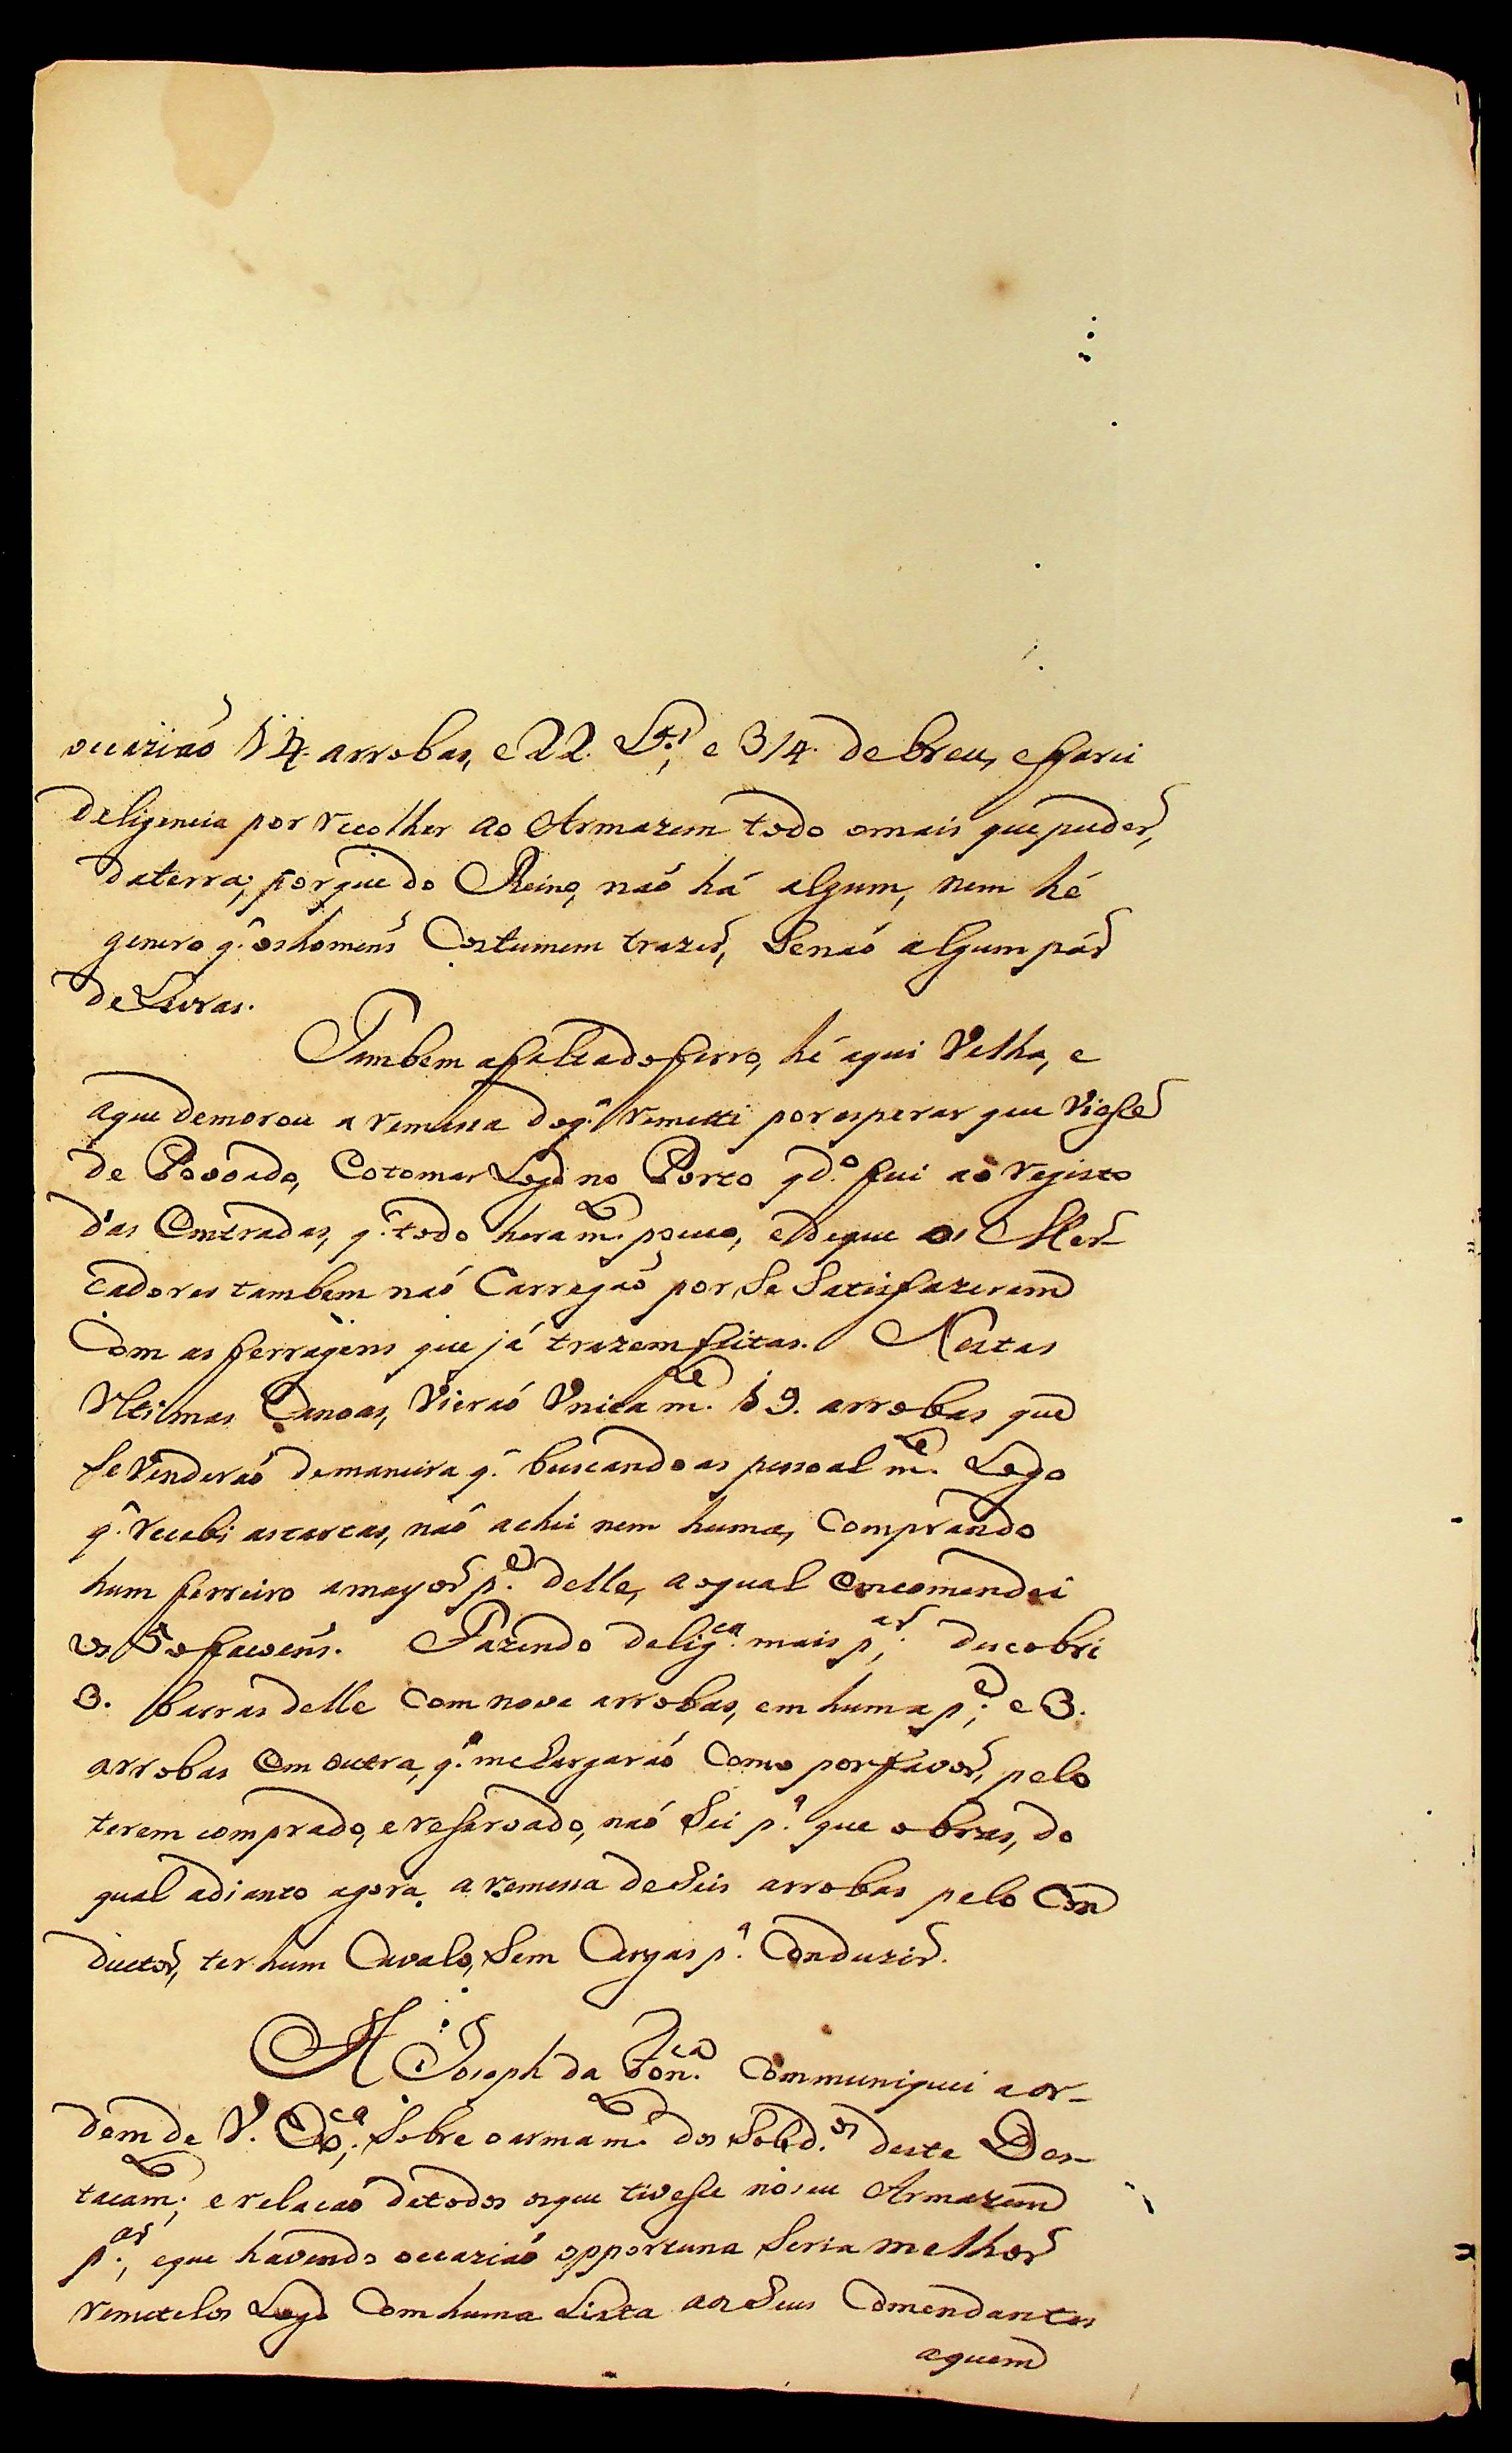 occaziaõ 14. arrobas, e 22. L.as, e 3/4. de breu, e farei
deligencia por recolher ao Armazem todo omais que puder,
daterra; porque do Reino, naõ há algum, nem hé
genero q̃. oshomens Costumem trazer, Senaõ algum pár
deLivras.
Tambem afaltadoferro, hé aqui Velha, e
aque demorou a remessa doq̃. remetti poresperar que Viesse
de Povoado, Cotomar Logo no Porto qd.o fui aõ registo
das Entradas, q̃. todo hera m.to pouco, edeque os Mer-
cadores tambem naõ Carregaõ por Se Satisfazerem
Com as ferragens que já trazem feitas. Nestas
Vltimas Canoas, Vieraõ Vnica m.te 19. arrobas que
Se Venderaõ demaneira q̃. buscandoas pessoal m.te Logo
q̃. recebi ascartas, naõ achei nem huma, Comprando
hum ferreiro amayor p.e delle, aoqual encomendei
os 50 facoens. Fazendo delig.ca mais p.ar, descobri
3. barras delle Com nove arrobas, em huma p.e; e 3.
arrobas Em outra, q̃. melargaraõ Como porfavor, pelo
terem comprado, e reservado, naõ Sei p.a que obras, do
qual adianto agora a remessa deSeis arrobas pelo Con
ductor, ter hum Cavalo, Sem Cargas p.a Conduzir.
A Joseph da Fon.ca Communiquei aor-
dem de V. Ex.ca, Sobre oarmam.to dos Sold.os deste Des-
tacam.to; e relacaõ detodos osque tivesse noseu Armazem
p.ar, eque havendo occaziaõ opportuna Seria melhor
remetelos Logo Comhuma Lista aosSeus Comendantes
aquem